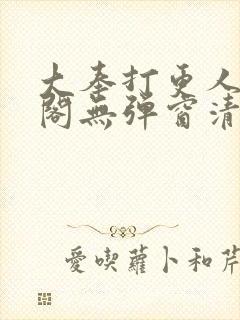 大奉打更人
閣無彈窗清
愛喫蘿卜和芹